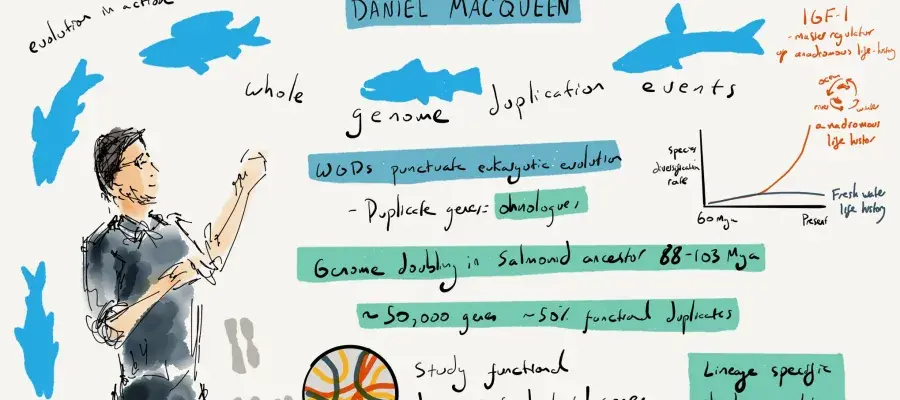 evolution in action
DANIEL MACQUEEN
whole genome duplication events
WGDs punctuate eukaryotic evolution
- Duplicate genes = ohnologues
Genome doubling in Salmonid ancestor 88-103 Mya
~50,000 genes ~50% functional duplicates
Study functional
Lineage specific
IGF-1
- master regulator
of anadromous life-history
ocean
river
water
anadromous
life histor
Species
diversification
rate
60 Mya
Present
Fresh water
life history